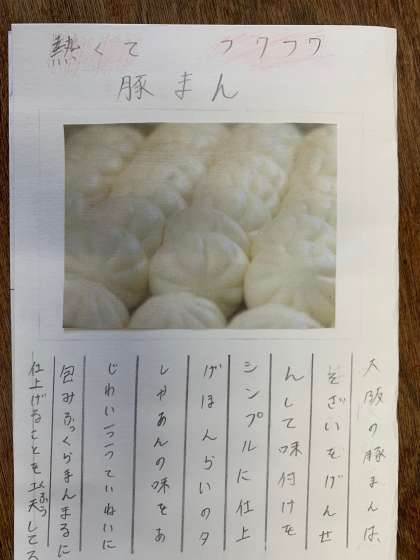 熱くて フワフワ
豚まん
大阪の豚まんは、
そざいをげんせ
んして味付けを
シンプルに仕上
げほんらいのタ
しゃあんの味をあ
じわい一つ一つていねいに
包みふっくらまんまるに
仕上げることを工夫してス